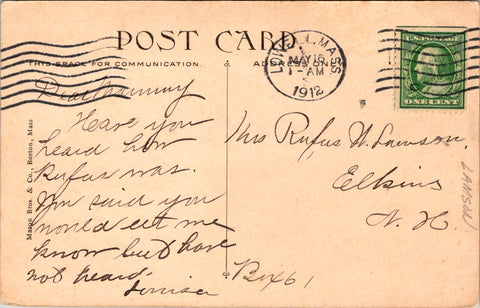 POST CARD
THIS SPACE FOR COMMUNICATION.
ADDRESS ONLY
LOWELL, MASS
MAY 15
1-AM
1912
U.S. POSTAGE
ONE CENT
Dear Mammy
Have you
heard how
Rufus was.
said you
would let me
know but have
not heard
Louisa
Mrs Rufus W. Lawson,
Elkins
N. H.
Box 61
LAMSON
Mason Bros. & Co., Boston, Mass